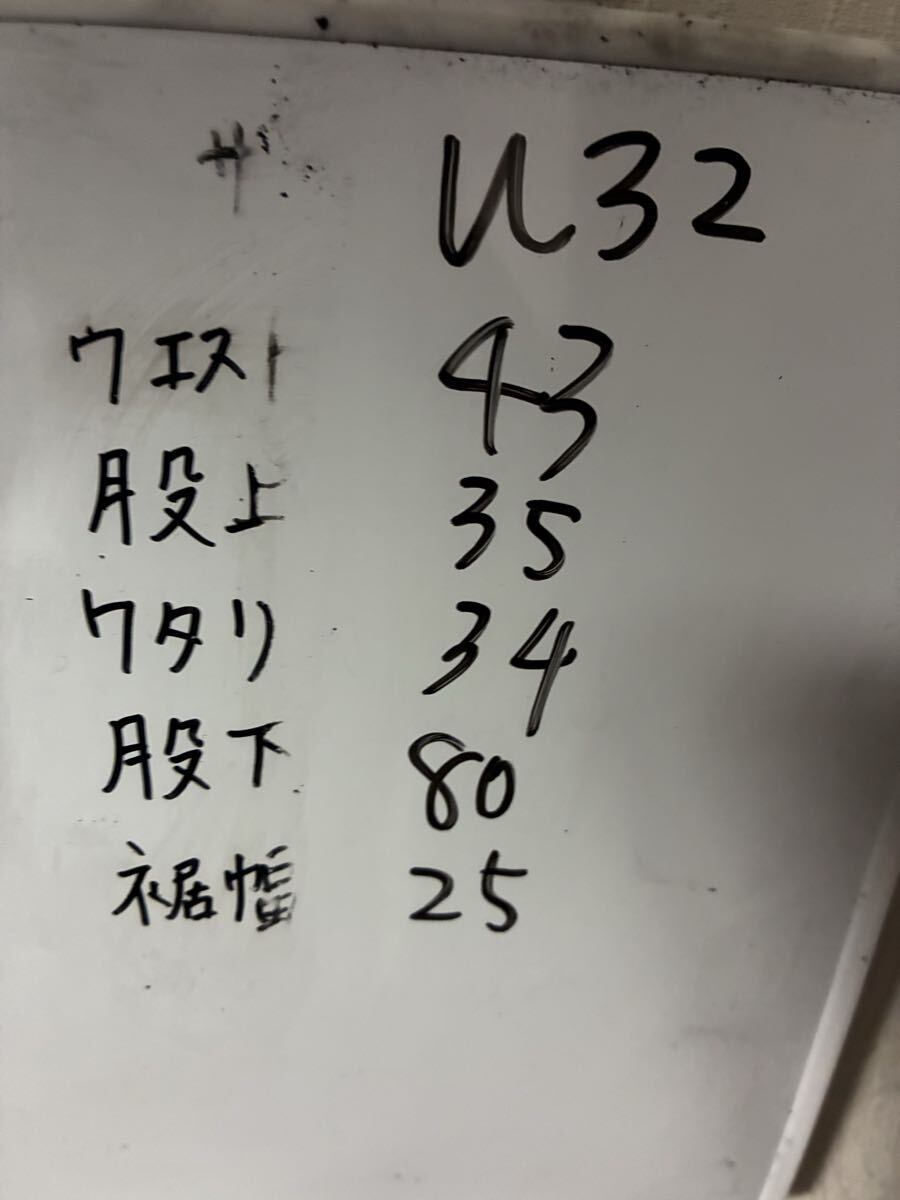 U32
ウエスト 43
股上 35
ワタリ 34
股下 80
裾幅 25